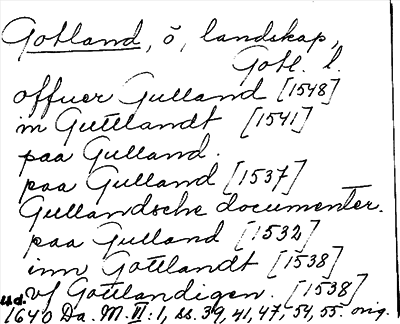 Gotland, ö, landskap,
Gotl. l.
offuer Gulland [1548]
in Guttlandt [1541]
paa Gulland.
paa Gulland [1537]
Gullandsche documenter.
paa Gulland [1532]
inn Gottlandt [1538]
vf Gottlandigen. [1538]
u.d.
1640 Da. M. VI:1, ss. 39, 41, 47, 54, 55. orig.